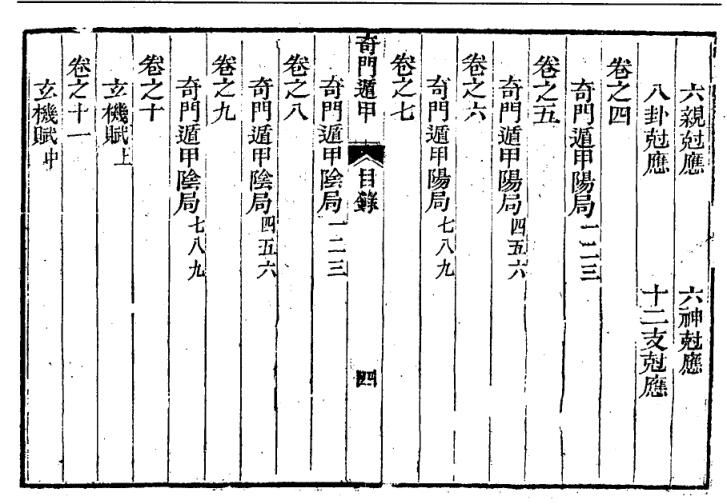 六親尅應　六神尅應
八卦尅應　十二支尅應
卷之四
奇門遁甲陽局一二三
卷之五
奇門遁甲陽局四五六
卷之六
奇門遁甲陽局七八九
卷之七
奇門遁甲　目錄　四
奇門遁甲陰局一二三
卷之八
奇門遁甲陰局四五六
卷之九
奇門遁甲陰局七八九
卷之十
玄機賦上
卷之十一
玄機賦中